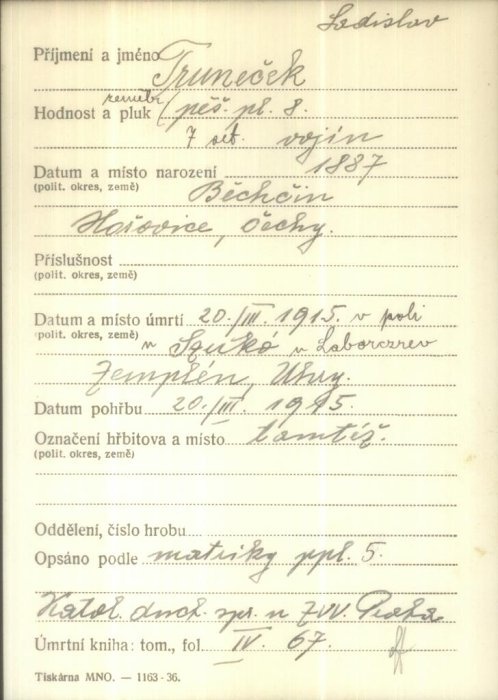 Ladislav
Příjmení a jméno Truneček
Hodnost a pluk zeměbr. pěš. pl. 8.
7 set. vojín
Datum a místo narození 1887
(polit. okres, země) Běhčin
Hořovice, Čechy.
Příslušnost
(polit. okres, země)
Datum a místo úmrtí 20./III. 1915. v poli
(polit. okres, země) u Szukó u Laborczrev
Zemplén, Uhry.
Datum pohřbu 20./III. 1915.
Označení hřbitova a místo tamtéž.
(polit. okres, země)
Oddělení, číslo hrobu
Opsáno podle matriky ppl. 5.
Katol. duch. spr. u ZVV. Praha
Úmrtní kniha: tom., fol. IV. 67.
Tiskárna MNO. — 1163-36.